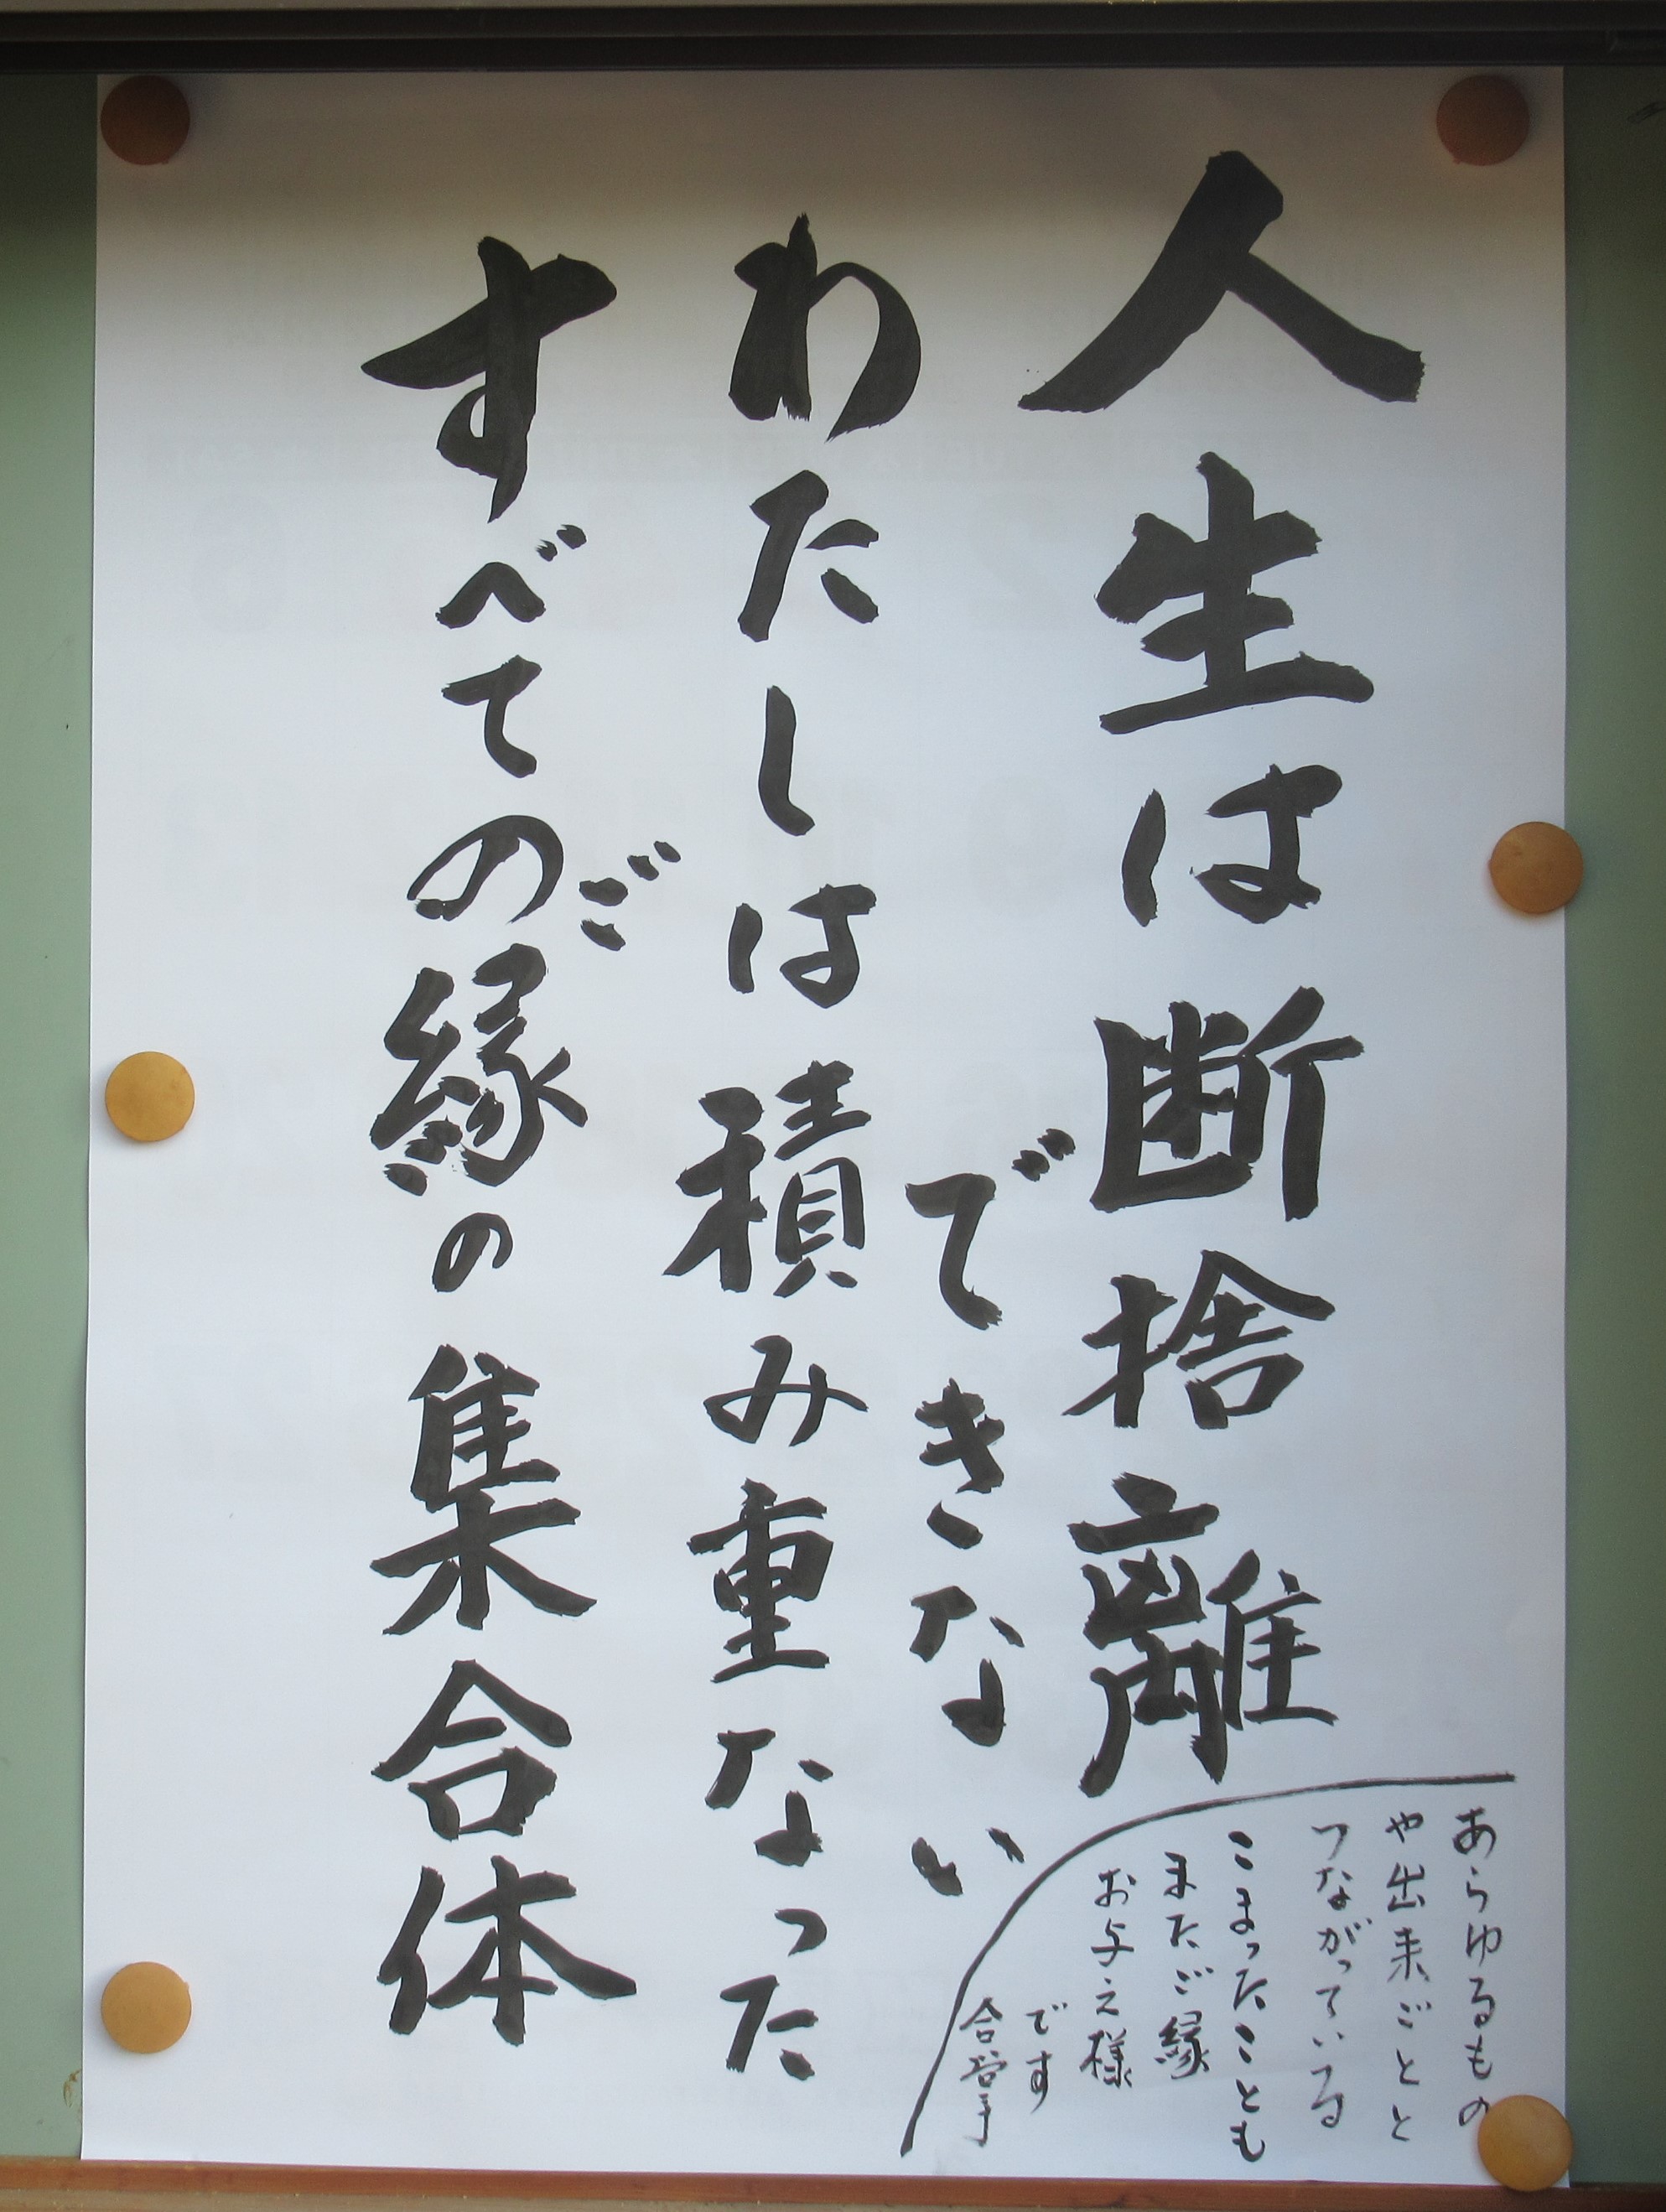 人生は断捨離
できない
わたしは積み重なった
すべてのご縁の集合体
あらゆるもの
や出来ごとと
つながっている
こまったことも
またご縁
お与え様
です
合掌